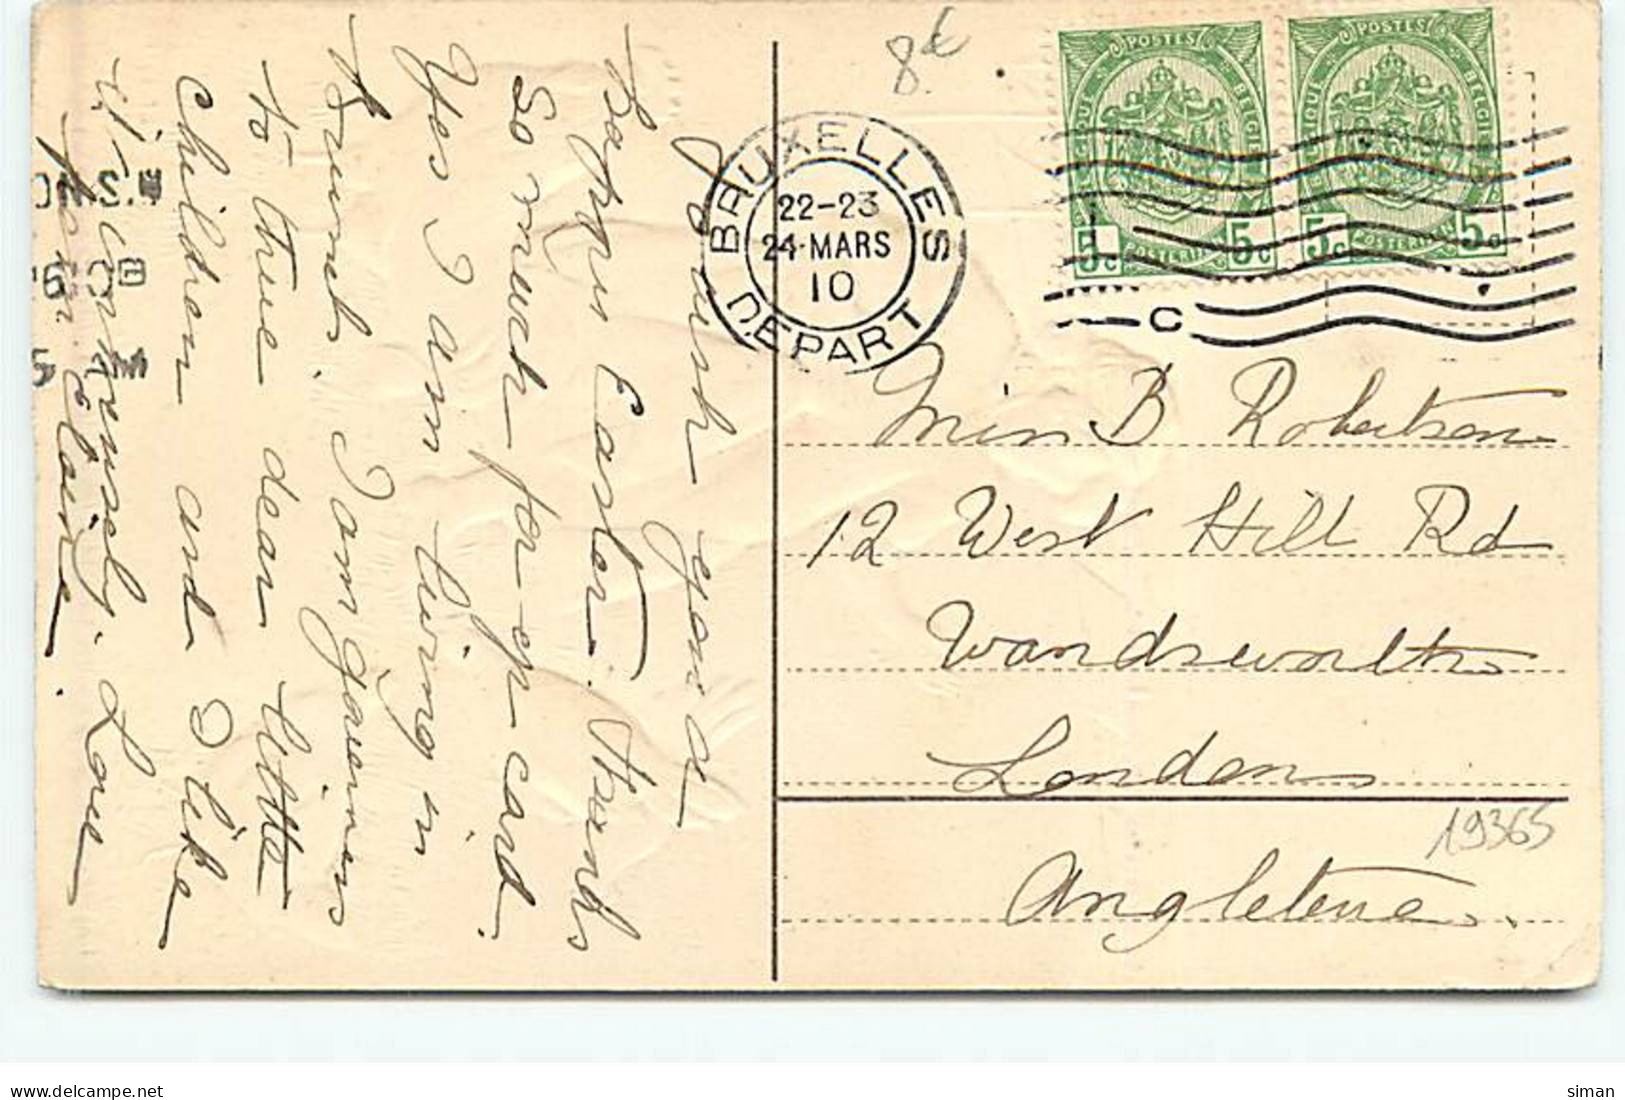 I wish you a
happy Easter. Thanks
so much for yr card.
Yes I am living in
Brussels. I am governess
to true dear little
children and I like
it immensely. Love
from Elaine
8€
BRUXELLES
22-23
24·MARS
10
DEPART
C
POSTES
BELGIQUE
BELGIË
5c 5c
POSTERIJEN
POSTES
BELGIQUE
BELGIË
5c 5c
POSTERIJEN
Miss B Robertson
12 West Hill Rd
Wandsworth
London
19365
Angleterre.
delcampe.net
siman